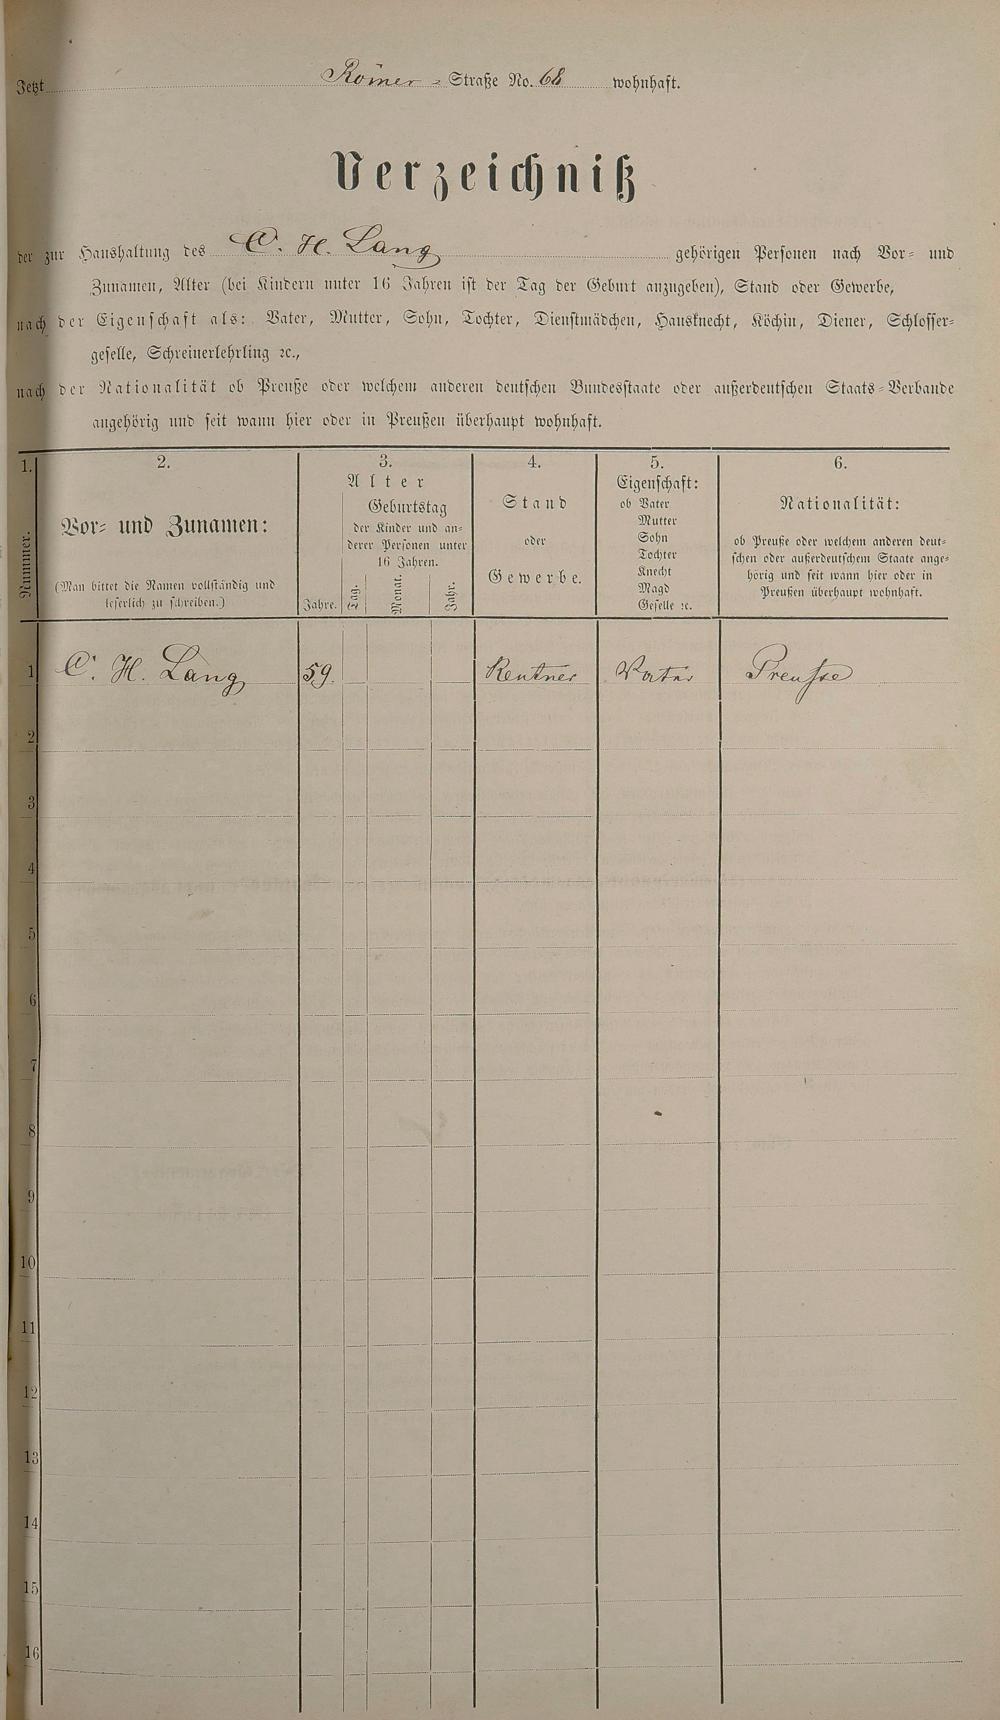 Jetzt Römer-Straße No. 68 wohnhaft.
Verzeichniß
der zur Haushaltung des C. H. Lang gehörigen Personen nach Vor- und
Zunamen, Alter (bei Kindern unter 16 Jahren ist der Tag der Geburt anzugeben), Stand oder Gewerbe,
nach der Eigenschaft als: Vater, Mutter, Sohn, Tochter, Dienstmädchen, Hausknecht, Köchin, Diener, Schlosser-
geselle, Schreinerlehrling ꝛc.,
nach der Nationalität ob Preuße oder welchem anderen deutschen Bundesstaate oder außerdeutschen Staats-Verbande
angehörig und seit wann hier oder in Preußen überhaupt wohnhaft.
1. 2. 3. 4. 5. 6.
Nummer.
Vor- und Zunamen:
(Man bittet die Namen vollständig und
leserlich zu schreiben.)
Alter
Jahre.
Geburtstag
der Kinder und an-
derer Personen unter
16 Jahren.
Tag. Monat. Jahr.
Stand
oder
Gewerbe.
Eigenschaft:
ob Vater
Mutter
Sohn
Tochter
Knecht
Magd
Geselle ꝛc.
Nationalität:
ob Preuße oder welchem anderen deut-
schen oder außerdeutschem Staate ange-
hörig und seit wann hier oder in
Preußen überhaupt wohnhaft.
1 C. H. Lang 59. Rentner Vater Preuße
2
3
4
5
6
7
8
9
10
11
12
13
14
15
16